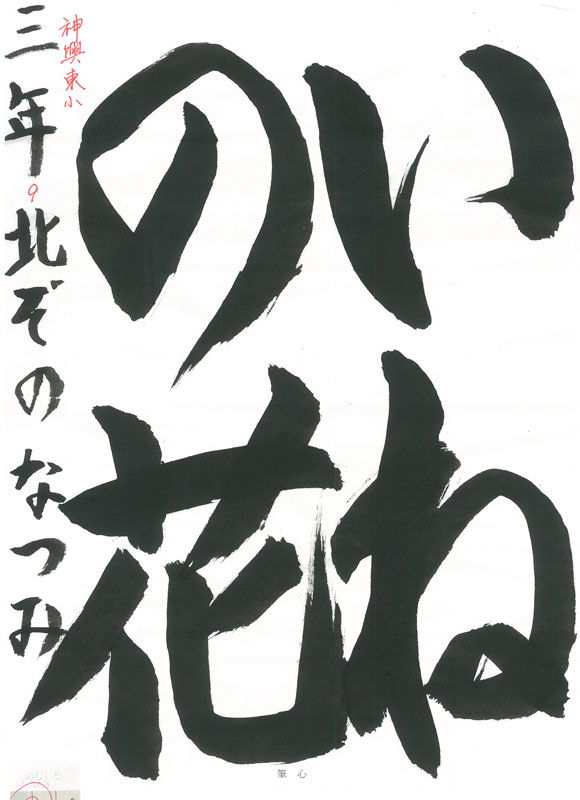 いね
の花
神興東小
三年 北ぞのなつみ
9
筆心